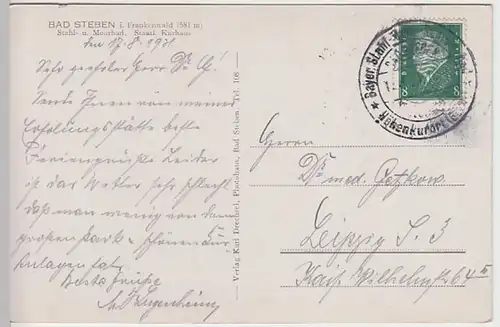 BAD STEBEN i. Frankenwald (581 m)
Stahl- u. Moorbad. Staatl. Kurhaus
den 17.8.1931
Sehr geehrter Herr Dr.
Sende Ihnen von meiner
Erholungsstätte beste
Feriengrüße. Leider
ist das Wetter sehr schlecht
daß man wenig von dem
großen Park u. schönen Kur
Anlagen hat.
Beste Grüße
Verlag Karl Photohaus, Bad Steben. Tel. 108
Bayer. Stahl-
Höhenkurort
8 8
Herrn
Dr. med.
Leipzig S. 3
Kais. Wilhelmstr 64 II